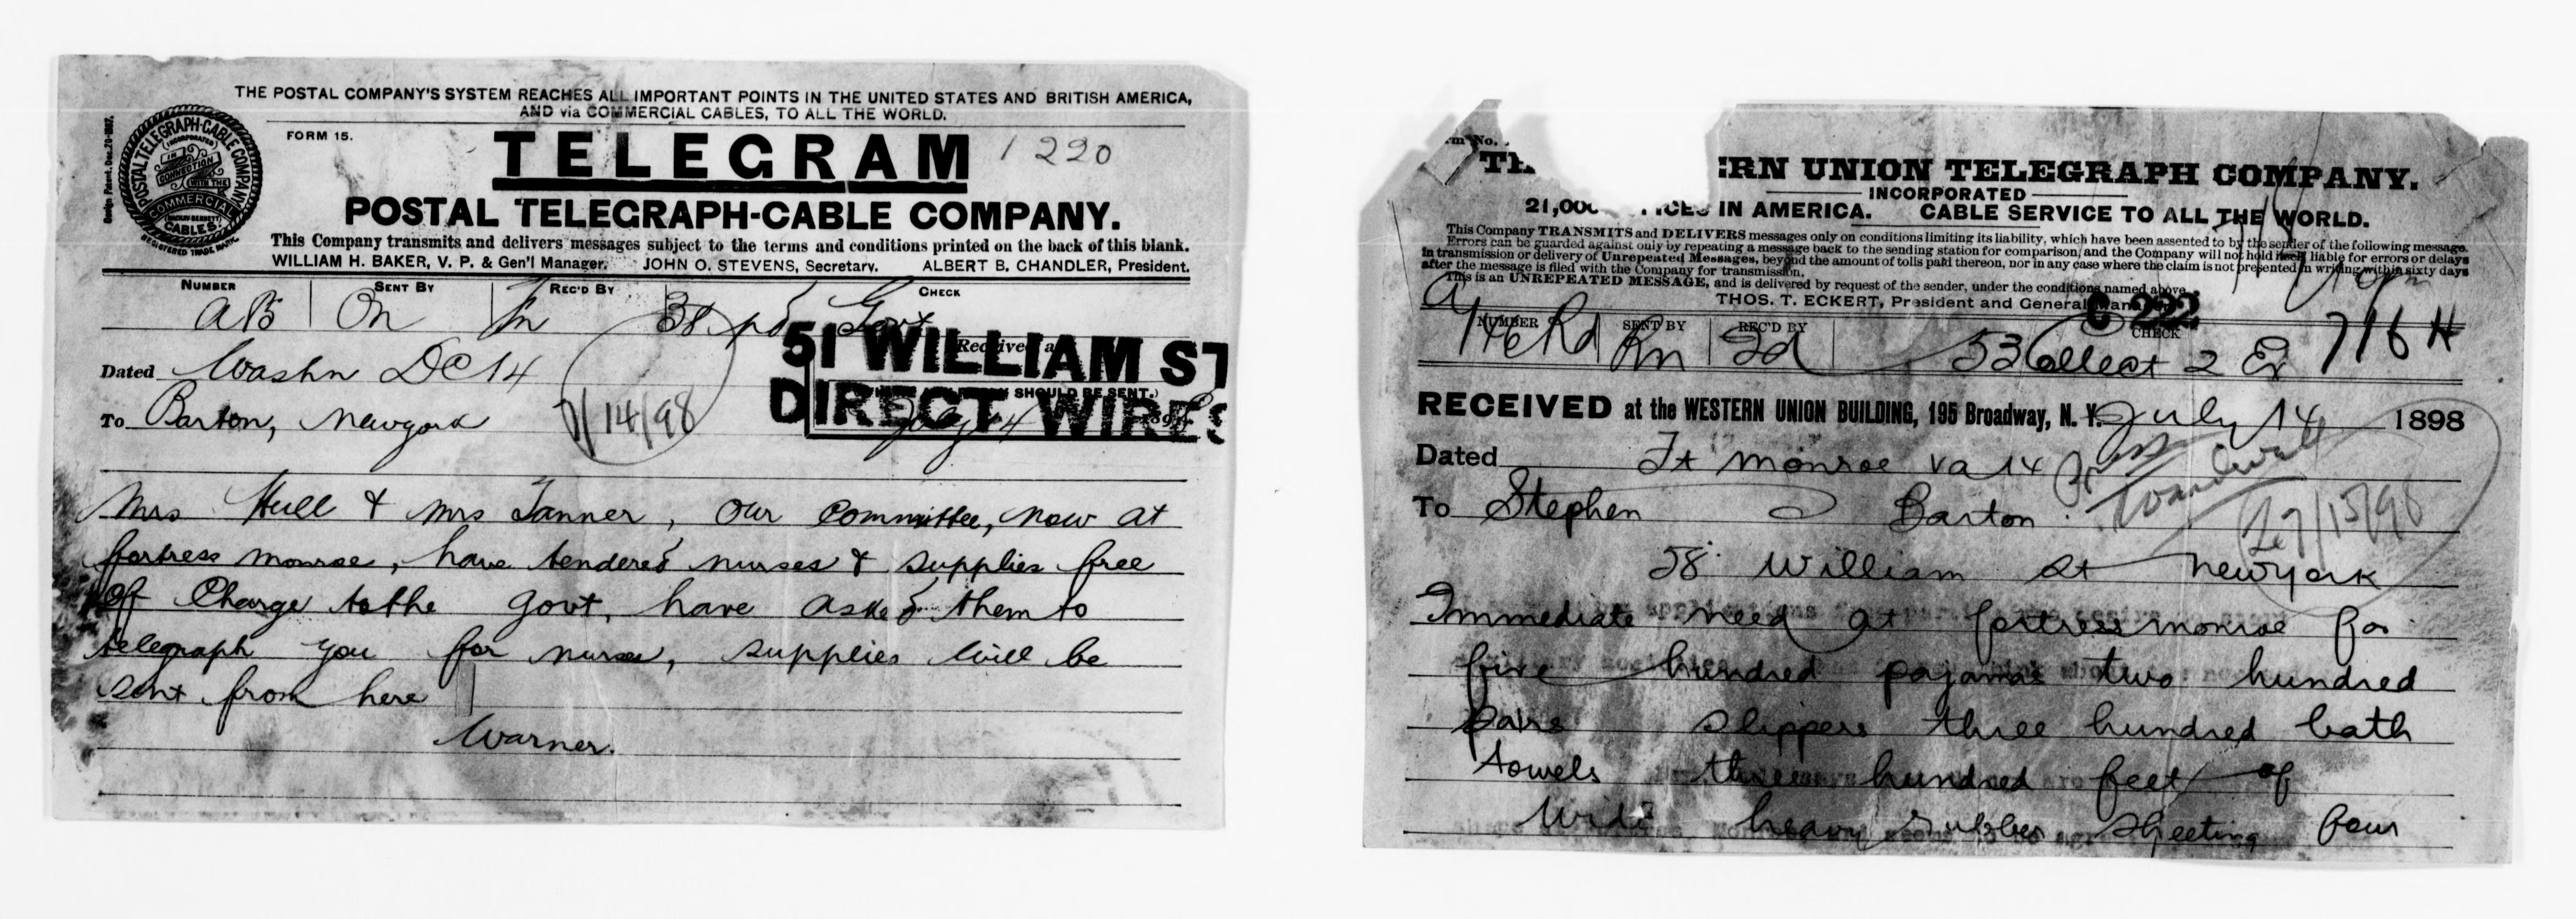 THE POSTAL COMPANY'S SYSTEM REACHES ALL IMPORTANT POINTS IN THE UNITED STATES AND BRITISH AMERICA,
AND via COMMERCIAL CABLES, TO ALL THE WORLD.
Design Patent. Dec. 20-1887.
POSTAL TELEGRAPH-CABLE COMPANY
(INCORPORATED)
IN CONNECTION WITH THE
COMMERCIAL
(MACKAY-BENNETT)
CABLES.
REGISTERED TRADE MARK.
FORM 15.
TELEGRAM
1220
POSTAL TELEGRAPH-CABLE COMPANY.
This Company transmits and delivers messages subject to the terms and conditions printed on the back of this blank.
WILLIAM H. BAKER, V. P. & Gen'l Manager. JOHN O. STEVENS, Secretary. ALBERT B. CHANDLER, President.
NUMBER SENT BY REC'D BY CHECK
aB On 38 pd Govt
51 WILLIAM ST
DIRECT WIRES
Received at
SHOULD BE SENT.)
Dated Washn DC 14
To Barton, Newyork
7/14/98
Mrs Hull & Mrs Tanner, our committee, now at
fortress monroe, have tendered nurses & supplies free
of Charge to the govt, have asked them to
telegraph you for nurses, supplies will be
sent from here
Warner.
RN UNION TELEGRAPH COMPANY.
INCORPORATED
21,000 OFFICES IN AMERICA. CABLE SERVICE TO ALL THE WORLD.
This Company TRANSMITS and DELIVERS messages only on conditions limiting its liability, which have been assented to by the sender of the following message.
Errors can be guarded against only by repeating a message back to the sending station for comparison, and the Company will not hold itself liable for errors or delays
in transmission or delivery of Unrepeated Messages, beyond the amount of tolls paid thereon, nor in any case where the claim is not presented in writing within sixty days
after the message is filed with the Company for transmission.
This is an UNREPEATED MESSAGE, and is delivered by request of the sender, under the conditions named above.
THOS. T. ECKERT, President and General Manager.
C 222
NUMBER SENT BY REC'D BY CHECK
53 Collect 2 716
RECEIVED at the WESTERN UNION BUILDING, 195 Broadway, N. Y. July 14 1898
Dated Ft monroe va 14
To Stephen Barton
7/15/98
58 William St Newyork
Immediate need at fortress monroe for
five hundred pajamas two hundred
pairs slippers three hundred bath
towels three hundred feet of
wide heavy rubber sheeting four